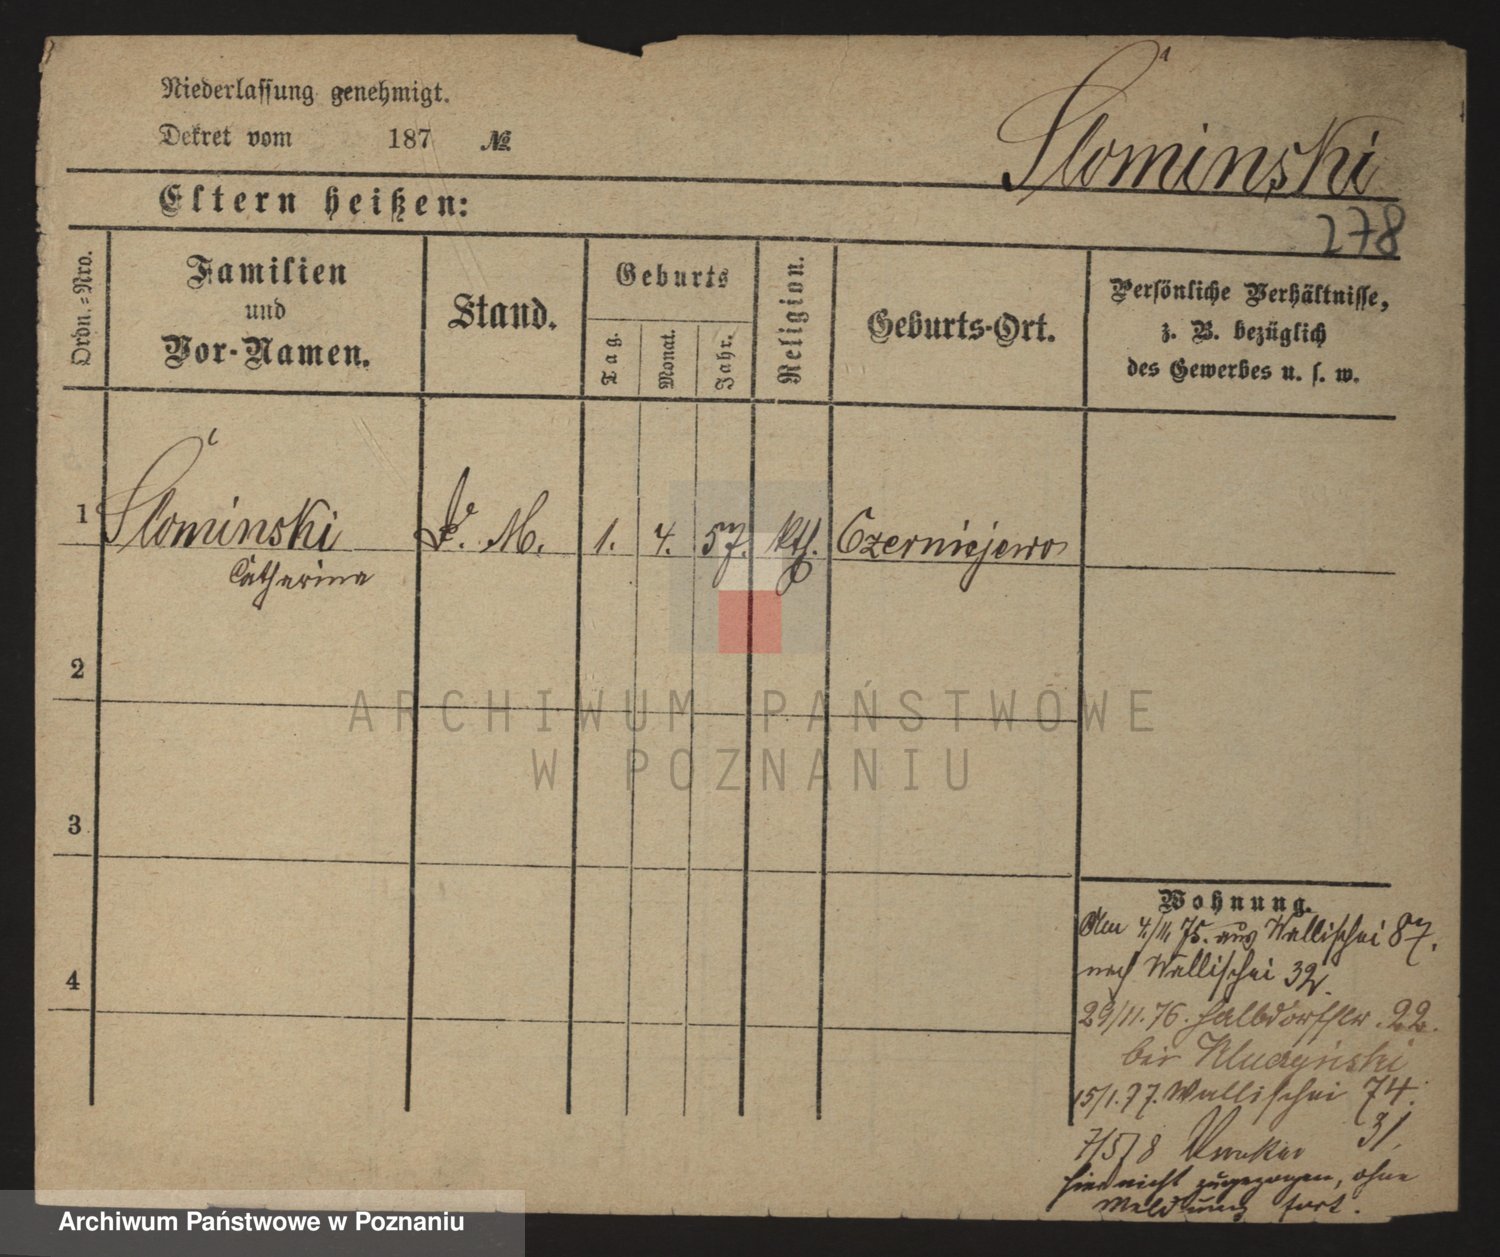 Niederlassung genehmigt.
Dekret vom 187 №
Słominski
Eltern heißen:
278
Ordn.=Nro.
Familien
und
Vor-Namen.
Stand.
Geburts
Tag.
Monat.
Jahr.
Religion.
Geburts-Ort.
Persönliche Verhältnisse,
z. B. bezüglich
des Gewerbes u. s. w.
1 Słominski D. M. 1. 4. 57. kth. Czerniejewo
Catharina
2
3
4
Wohnung.
Am 4/11 75. aus Wallischei 87.
nach Wallischei 32.
29/11. 76. Halbdorfstr. 22.
bei
15/1. 77. Wallischei 74.
7/5 78 31.
hier nicht zugezogen, ohne
Meldung fort.
ARCHIWUM PAŃSTWOWE
W POZNANIU
Archiwum Państwowe w Poznaniu